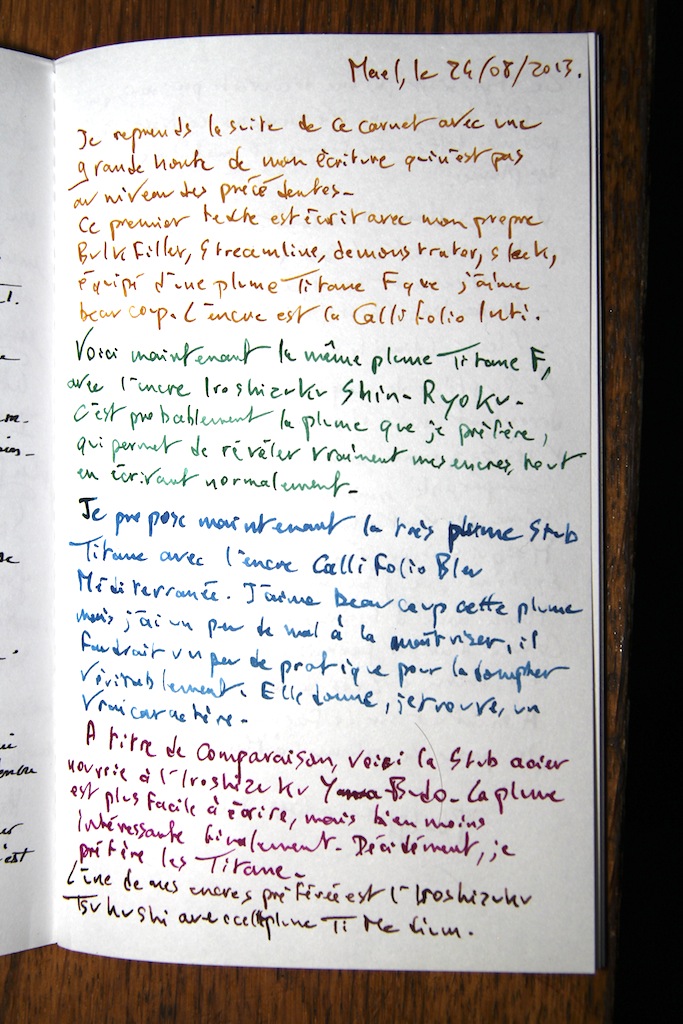 Mael, le 24/08/2013.
Je reprends la suite de ce carnet avec une
grande honte de mon écriture qui n'est pas
au niveau des précédentes-
Ce premier texte est écrit avec mon propre
Bulkfiller, Streamline, demonstrator, sleek,
équipé d'une plume Titane F que j'aime
beaucoup. L'encre est la Callifolio Inti.
Voici maintenant la même plume Titane F,
avec l'encre Iroshizuku Shin-Ryoku-
C'est probablement la plume que je préfère,
qui permet de révéler vraiment mes encres, tout
en écrivant normalement-
Je propose maintenant la très plume Stub
Titane avec l'encre Callifolio Bleu
Méditerranée. J'aime beaucoup cette plume
mais j'ai un peu de mal à la maîtriser, il
faudrait un peu de pratique pour la dompter
véritablement. Elle donne, je trouve, un
vrai caractère-
A titre de comparaison, voici la Stub acier
nourrie à l'Iroshizuku Yama-Budo-La plume
est plus facile à écrire, mais bien moins
intéressante finalement- Décidément, je
préfère les Titane-
L'une de mes encres préférée est l'Iroshizuku
Tsukushi avec plume Ti Medium.
I.
est